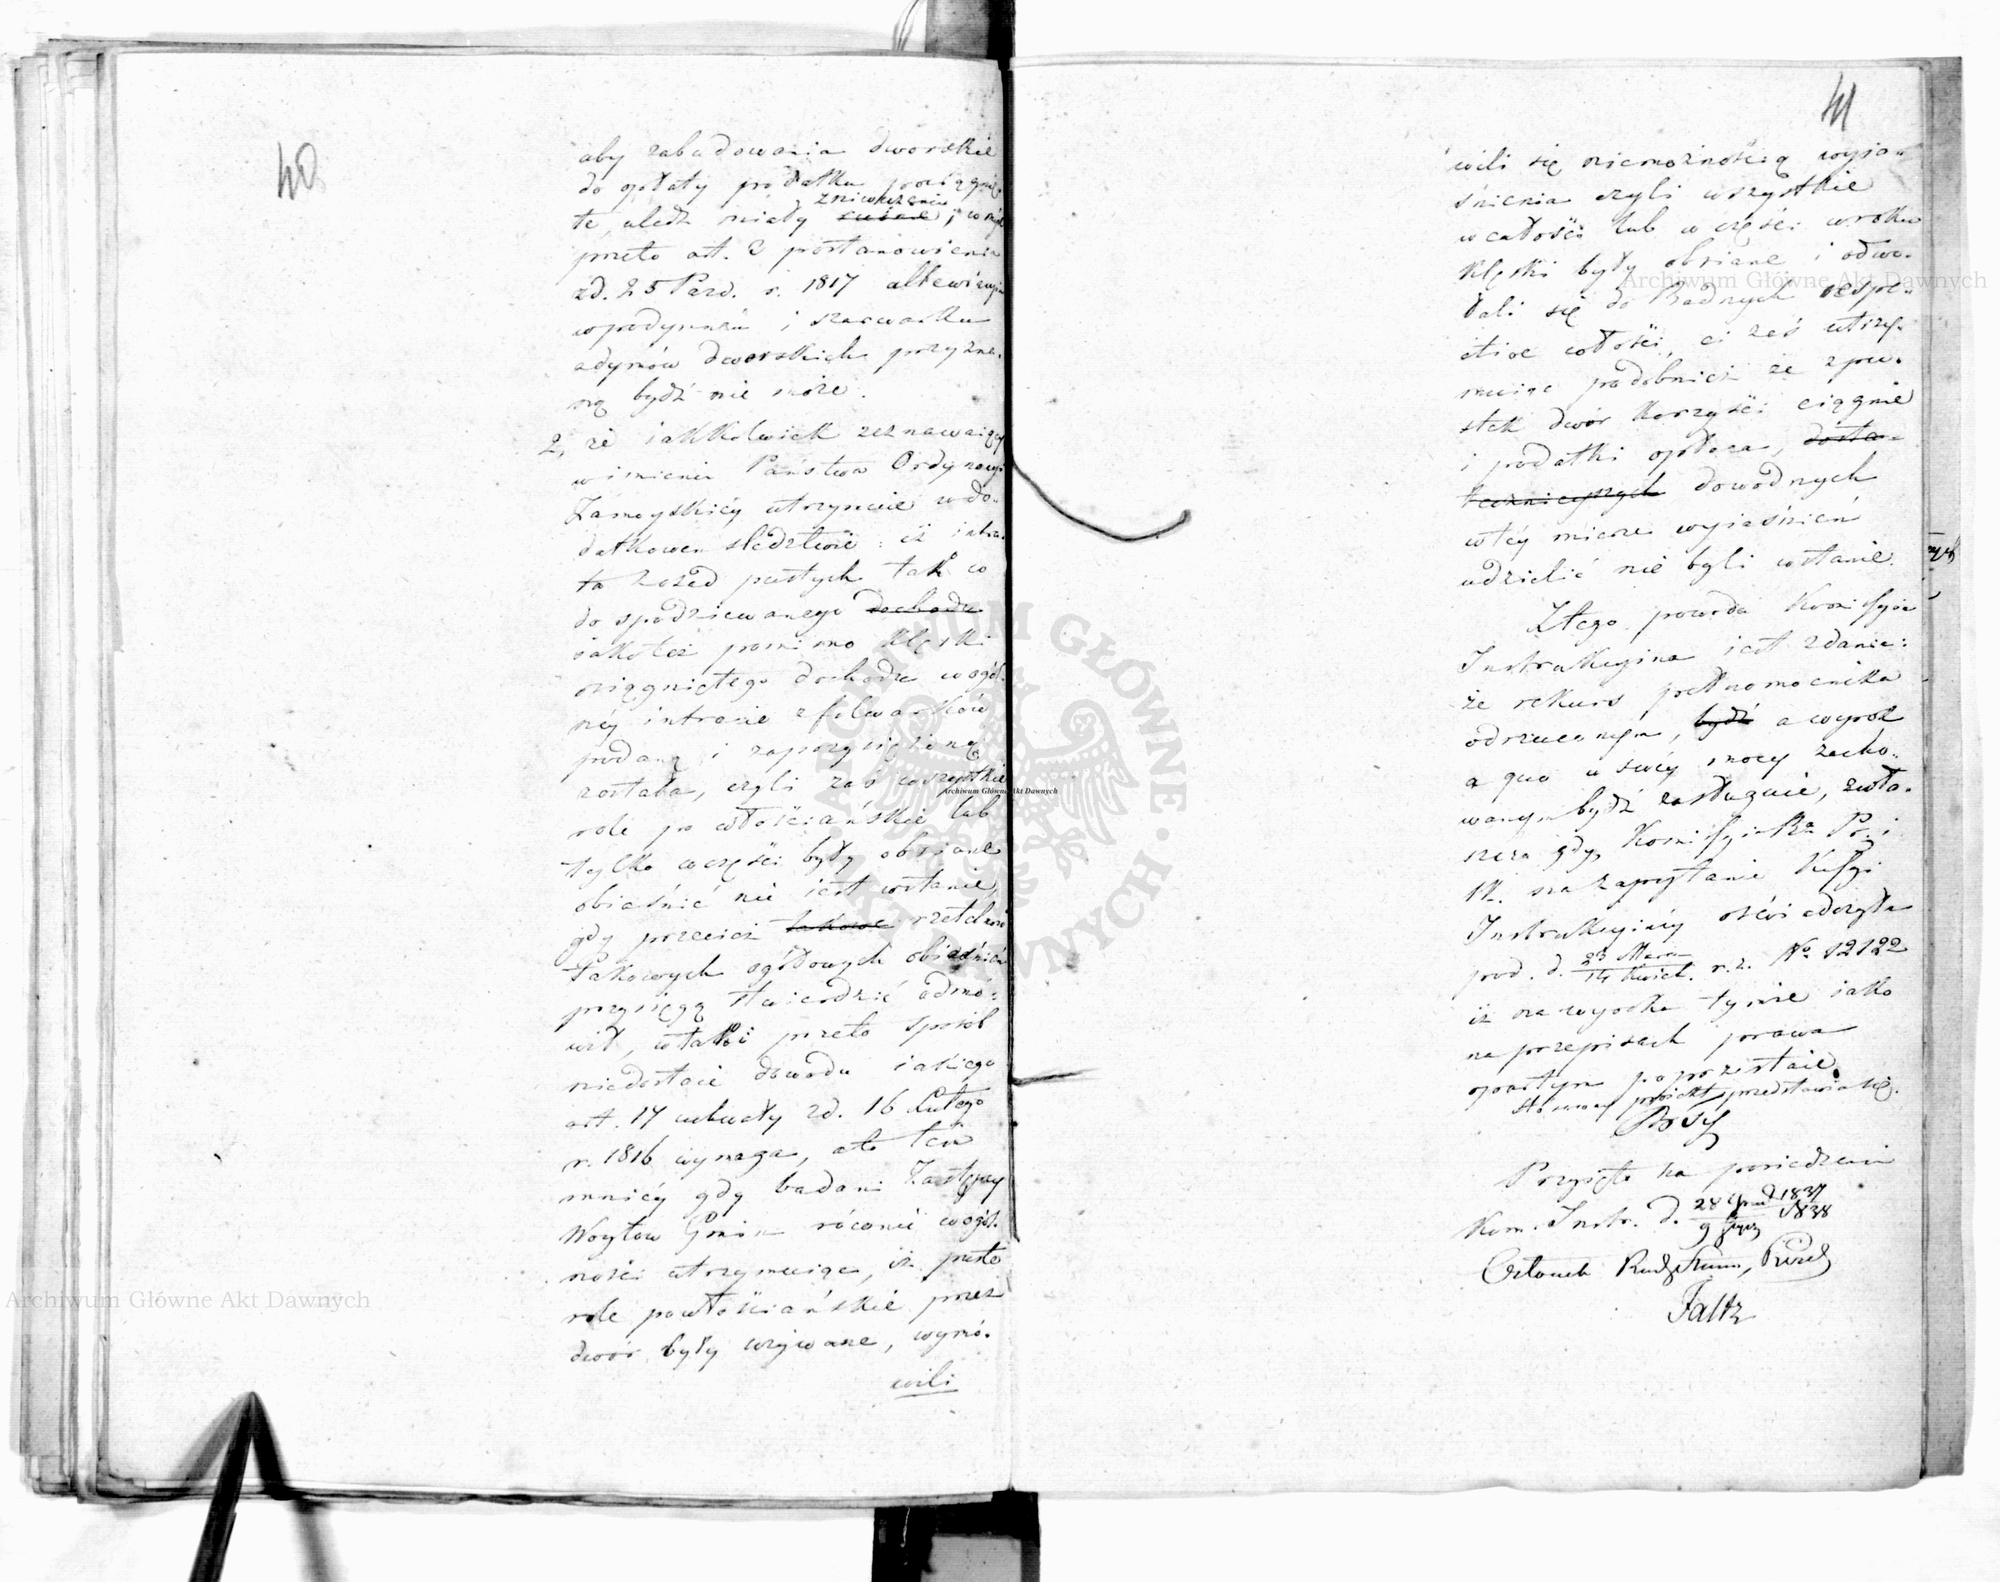 40
aby zabudowania dworskie
do opłaty podatku pociągnię-
te, uledz miały zniweczeniu
przeto art. 2 postanowienia
zd. 25 Paźd. r. 1817
w podymném i szarwarku
a dymów dworskich przyzna-
ną bydź nie może.
2, że jakkolwiek zeznawaiący
w imieniu Państwa Ordynacyi
Zamoyskiéy utrzymuie w do-
datkowem śledztwie: iż intra-
ta z osad pustych tak co
do spodziewanego dochodu
iakoteż pomimo klęski
osiągniętego dochodu w ogól-
néy intracie z folwarków
podaną i zaprzysiężoną
została, czyli zaś wszystkie
role po włościańskie lub
tylko w części były obsiane
obiaśnić nie iest wstanie,
gdy przecież takowe rzetelność
takowych ogółowych obiaśnień
przysięgą stwierdzić odmó-
wił, w taki przeto sposób
niedostaie dowodu iakiego
art. 17 uchwały zd. 16 Lutego
r. 1816 wymaga, a to tem
mniéy gdy badani Zastępcy
Woytów Gmin równie w ogól-
ności utrzymuiąc, iż puste
role powłościańskie przez
dwór były używane, wymó-
wili
41
wili się niemożnością wyia-
śnienia czyli wszystkie
w całości lub w części w roku
klęski były obsiane i odwo-
łali się do Radnych respe-
ctive włości, ci zaś utrzy-
muiąc podobnież że z pu-
stek dwór korzyści ciągnie
i podatki opłaca, dosta-
teczniejszych dowodnych
w téy mierze wyiaśnień
udzielić nie byli wstanie.
Z tego powodu Kommissyia
Instrukcyina iest zdania:
że rekurs pełnomocnika
odrzuconym, bydź a wyrok
a quo w swéy mocy zacho-
wanym bydź zasługuie, zwła-
szcza gdy Kommissyia Rz. P. i
Sk. na zapytanie Kssyi
Instrukcyinéy oświadczyła
pod d. 23 Marca / 14 Kwiet. r. z. No 12122
iż na wyroku tymże iako
na przepisach prawa
opartym poprzestaie.
Stosowny proiekt przedstawia się.
Przyięto na posiedzeniu
Kom. Instr. d. 28 Grud. 1837 / 9 Stycz. 1838
Członek
Faltz